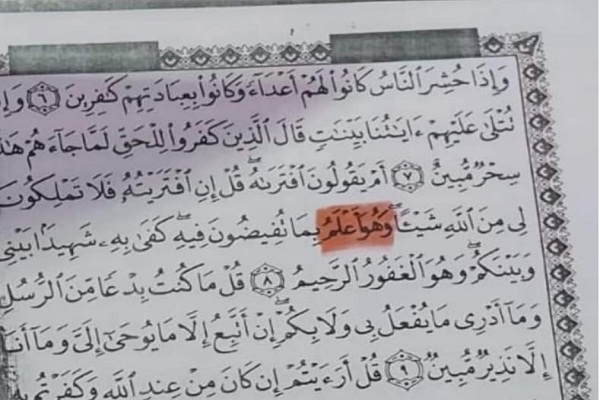 وَإِذَا حُشِرَ ٱلنَّاسُ كَانُوا۟ لَهُمْ أَعْدَآءً وَكَانُوا۟ بِعِبَادَتِهِمْ كَٰفِرِينَ ٦
تُتْلَىٰ عَلَيْهِمْ ءَايَٰتُنَا بَيِّنَٰتٍ قَالَ ٱلَّذِينَ كَفَرُوا۟ لِلْحَقِّ لَمَّا جَآءَهُمْ
سِحْرٌ مُّبِينٌ ٧ أَمْ يَقُولُونَ ٱفْتَرَىٰهُ ۖ قُلْ إِنِ ٱفْتَرَيْتُهُۥ فَلَا تَمْلِكُونَ
لِى مِنَ ٱللَّهِ شَيْـًٔا ۖ وَهُوَ أَعْلَمُ بِمَا تُفِيضُونَ فِيهِ ۖ كَفَىٰ بِهِۦ شَهِيدًۢا بَيْنِى
وَبَيْنَكُمْ ۖ وَهُوَ ٱلْغَفُورُ ٱلرَّحِيمُ ٨ قُلْ مَا كُنتُ بِدْعًا مِّنَ ٱلرُّسُلِ
وَمَآ أَدْرِى مَا يُفْعَلُ بِى وَلَا بِكُمْ ۖ إِنْ أَتَّبِعُ إِلَّا مَا يُوحَىٰٓ إِلَىَّ وَمَآ أَنَا۠
إِلَّا نَذِيرٌ مُّبِينٌ ٩ قُلْ أَرَءَيْتُمْ إِن كَانَ مِنْ عِندِ ٱللَّهِ وَكَفَرْتُم بِهِ